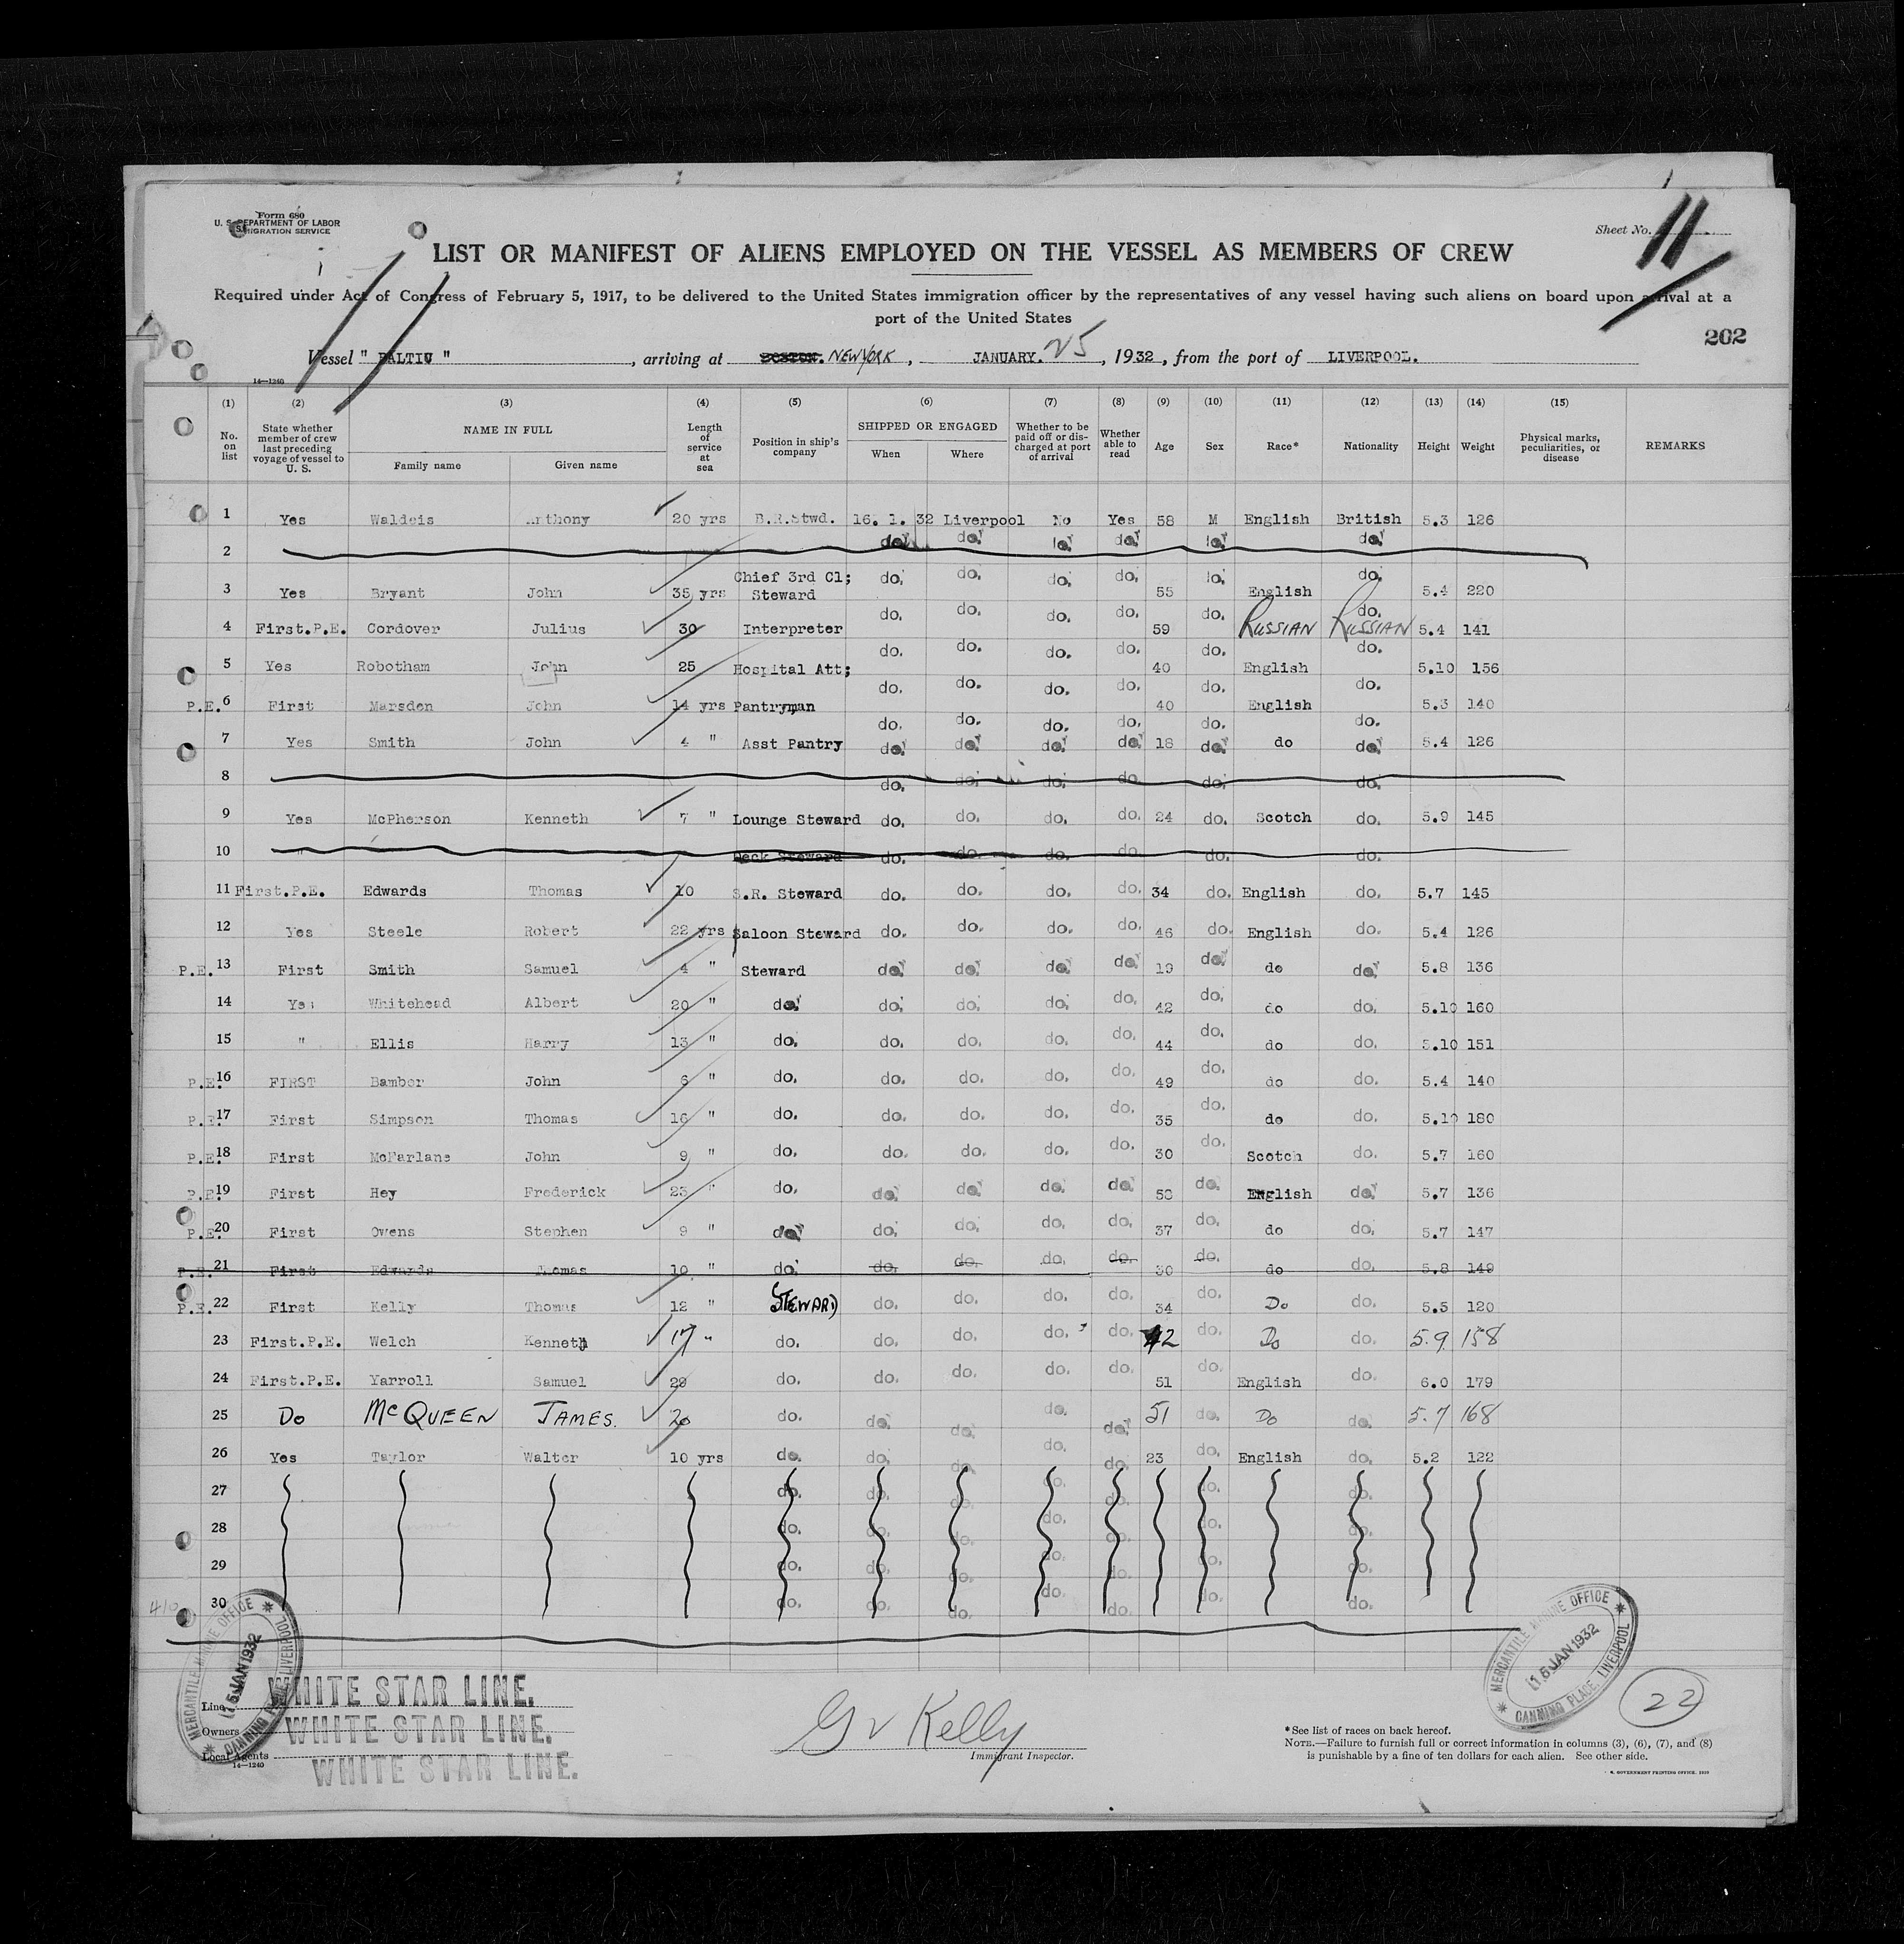 Form 680
U. S. DEPARTMENT OF LABOR
IMMIGRATION SERVICE
Sheet No. 11
LIST OR MANIFEST OF ALIENS EMPLOYED ON THE VESSEL AS MEMBERS OF CREW
Required under Act of Congress of February 5, 1917, to be delivered to the United States immigration officer by the representatives of any vessel having such aliens on board upon arrival at a
port of the United States
202
Vessel " BALTIC ", arriving at BOSTON. NEW YORK, JANUARY. 25, 1932, from the port of LIVERPOOL.
14—1240
(1) (2) (3) (4) (5) (6) (7) (8) (9) (10) (11) (12) (13) (14) (15)
No. on list State whether member of crew last preceding voyage of vessel to U. S. NAME IN FULL Family name Given name Length of service at sea Position in ship's company SHIPPED OR ENGAGED When Where Whether to be paid off or discharged at port of arrival Whether able to read Age Sex Race* Nationality Height Weight Physical marks, peculiarities, or disease REMARKS
1 Yes Waldeis Anthony 20 yrs B.R.Stwd. 16. 1. 32 Liverpool No Yes 58 M English British 5.3 126
2 do. do. do. do. do. do.
3 Yes Bryant John 35 yrs Chief 3rd Cl; Steward do. do. do. do. 55 do. English do. 5.4 220
4 First.P.E. Cordover Julius 30 Interpreter do. do. do. do. 59 do. RUSSIAN do. RUSSIAN 5.4 141
5 Yes Robotham John 25 Hospital Att; do. do. do. do. 40 do. English do. 5.10 156
P.E. 6 First Marsden John 14 yrs Pantryman do. do. do. do. 40 do. English do. 5.3 140
7 Yes Smith John 4 " Asst Pantry do. do. do. do. 18 do. do do. 5.4 126
8 do. do. do. do. do. do.
9 Yes McPherson Kenneth 7 " Lounge Steward do. do. do. do. 24 do. Scotch do. 5.9 145
10 " Deck Steward do. do. do. do. do. do.
11 First.P.E. Edwards Thomas 10 S.R. Steward do. do. do. do. 34 do. English do. 5.7 145
12 Yes Steele Robert 22 yrs Saloon Steward do. do. do. do. 46 do. English do. 5.4 126
P.E. 13 First Smith Samuel 4 " Steward do. do. do. do. 19 do. do do. 5.8 136
14 Yes Whitehead Albert 20 " do. do. do. do. do. 42 do. do do. 5.10 160
15 " Ellis Harry 13 " do. do. do. do. do. 44 do. do do. 5.10 151
P.E. 16 FIRST Bamber John 6 " do. do. do. do. do. 49 do. do do. 5.4 140
P.E. 17 First Simpson Thomas 16 " do. do. do. do. do. 35 do. do do. 5.10 180
P.E. 18 First McFarlane John 9 " do. do. do. do. do. 30 do. Scotch do. 5.7 160
P.E. 19 First Hey Frederick 23 " do. do. do. do. do. do. English do. 5.7 136
P.E. 20 First Owens Stephen 9 " do. do. do. do. do. 37 do. do do. 5.7 147
P.E. 21 First Edwards Thomas 10 " do. do. do. do. do. 30 do. do do. 5.8 149
P.E. 22 First Kelly Thomas 12 " STEWARD do. do. do. do. 34 do. Do do. 5.5 120
23 First.P.E. Welch Kenneth 17 " do. do. do. do. do. 42 do. Do do. 5.9 158
24 First.P.E. Yarroll Samuel 29 do. do. do. do. do. 51 do. English do. 6.0 179
25 Do McQUEEN JAMES. 20 do. do. do. do. do. 51 do. Do do. 5.7 168
26 Yes Taylor Walter 10 yrs do. do. do. do. do. 23 do. English do. 5.2 122
27 do. do. do. do. do. do. do.
28 do. do. do. do. do. do. do.
29 do. do. do. do. do. do. do.
30 do. do. do. do. do. do. do.
MERCANTILE MARINE OFFICE
15 JAN 1932
CANNING PLACE, LIVERPOOL
Line WHITE STAR LINE.
Owners WHITE STAR LINE.
Local Agents WHITE STAR LINE.
14—1240
G V Kelly
Immigrant Inspector.
MERCANTILE MARINE OFFICE
15 JAN 1932
CANNING PLACE, LIVERPOOL
22
*See list of races on back hereof.
NOTE.—Failure to furnish full or correct information in columns (3), (6), (7), and (8)
is punishable by a fine of ten dollars for each alien. See other side.